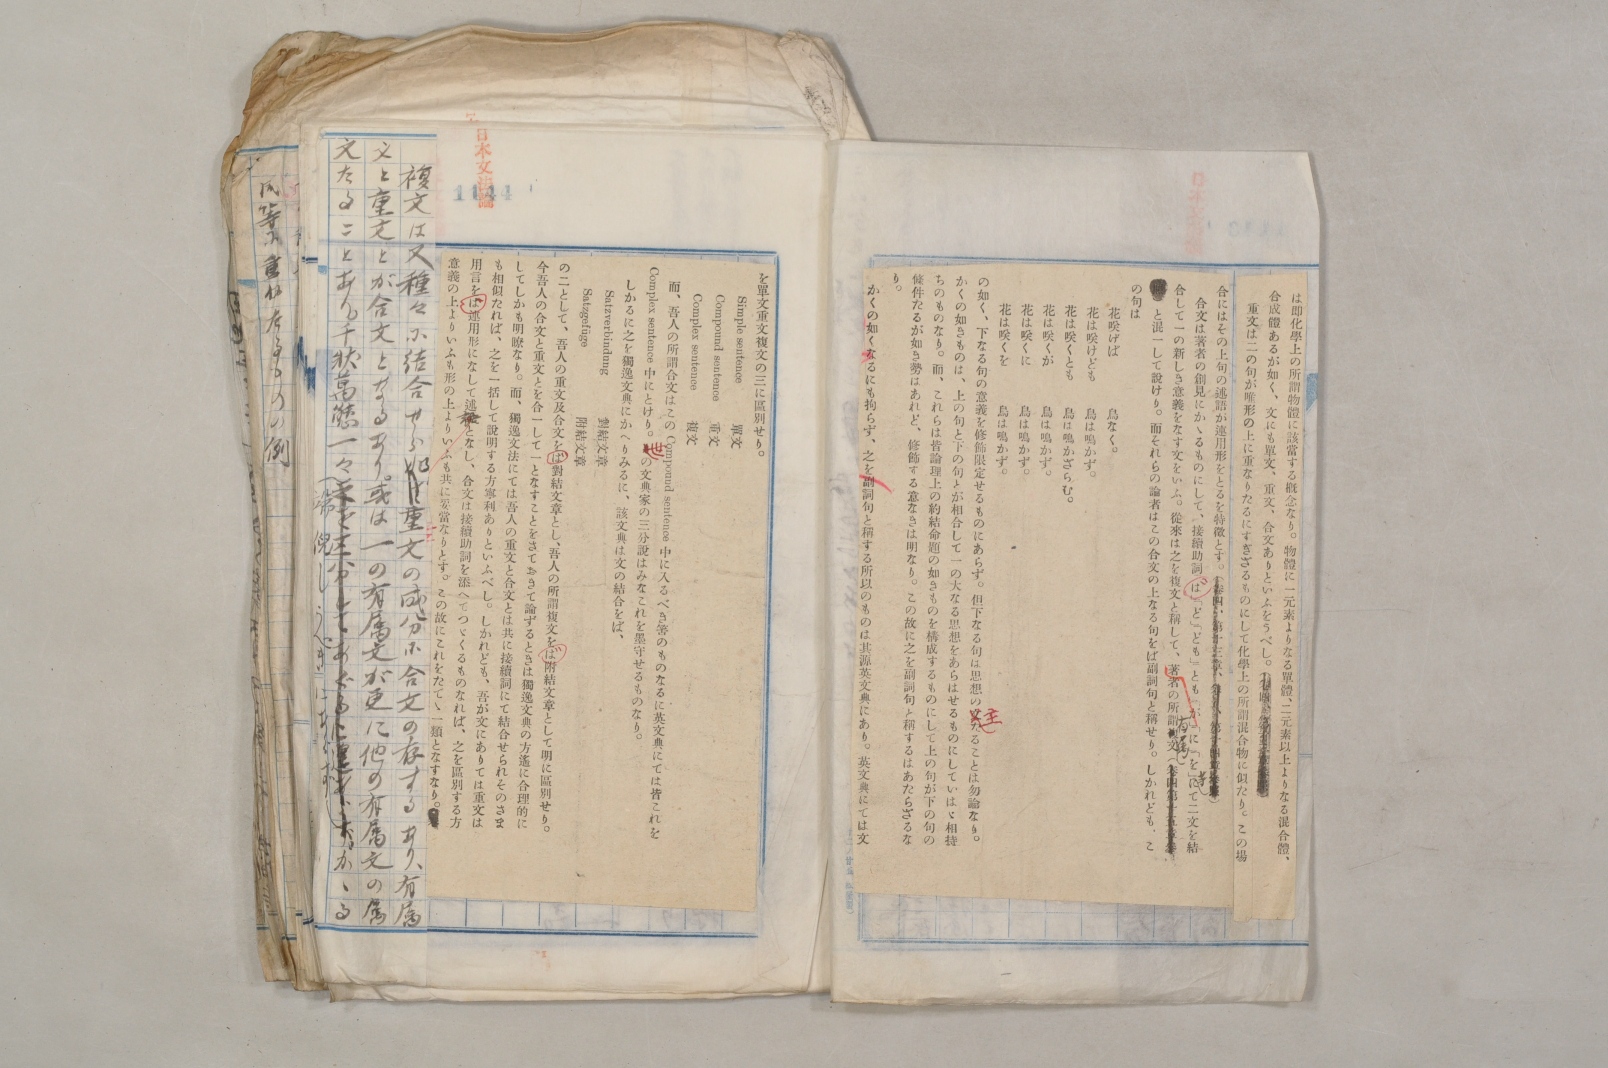 は即化學上の所謂物體に該當する概念なり。物體に一元素よりなる單體、二元素以上よりなる混合體、
合成體あるが如く、文にも單文、重文、合文ありといふをうべし。
重文は二の句が唯形の上に重なりたるにすぎざるものにして化學上の所謂混合物に似たり。この場
合にはその上句の述語が連用形をとるを特徴とす。
合文は著者の創見にかゝるものにして、接續助詞「ば」「ど」「ども」「とも」「が」「に」「を」にて二文を結
合して一の新しき意義をなす文をいふ。從來は之を複文と稱して、著者の所謂
と混一して說けり。而それらの論者はこの合文の上なる句をば副詞句と稱せり。しかれども、こ
の句は
花咲けば 鳥なく。
花は咲けども 鳥は鳴かず。
花は咲くとも 鳥は鳴かざらむ。
花は咲くが 鳥は鳴かず。
花は咲くに 鳥は鳴かず。
花は咲くを 鳥は鳴かず。
の如く、下なる句の意義を修飾限定せるものにあらず。但下なる句は思想の主なることは勿論なり。
かくの如きものは、上の句と下の句とが相合して一の大なる思想をあらはせるものにしていはゞ相持
ちのものなり。而、これらは皆論理上の約結命題の如きものを構成するものにして上の句が下の句の
條件たるが如き勢はあれど、修飾する意なきは明なり。この故に之を副詞句と稱するはあたらざるな
り。
かくの如くなるにも拘らず、之を副詞句と稱する所以のものは其源英文典にあり。英文典にては文
日本文法論
1144
を單文重文複文の三に區別せり。
Simple sentence 單文
Compound sentence 重文
Complex sentence 複文
而、吾人の所謂合文はこの Compound sentence 中に入るべき筈のものなるに英文典にては皆これを
Complex sentence 中にとけり。世の文典家の三分說はみなこれを墨守せるものなり。
しかるに之を獨逸文典にかへりみるに、該文典は文の結合をば、
Satzverbindung 對結文章
Satzgefüge 附結文章
の二として、吾人の重文及合文をば對結文章とし、吾人の所謂複文をば附結文章として明に區別せり。
今吾人の合文と重文とを合一して一となすことをさておきて論ずるときは獨逸文典の方遙に合理的に
してしかも明瞭なり。而、獨逸文法にては吾人の重文と合文とは共に接續詞にて結合せられそのさま
も相似たれば、之を一括して說明する方寧利ありといふべし。しかれども、吾が文にありては重文は
用言をば連用形になして述べとなし、合文は接續助詞を添へてつゞくるものなれば、之を區別する方
意義の上よりいふも形の上よりいふも共に妥當なりとす。この故にこれをたてゝ一類となすなり。
複文は又種々に結合せられ重文の成分に合文の存するあり、有属
文と重文とが合文となるあり。或は一の有属文が更に他の有属文の属
文たることあり。千狀萬態一々
の例